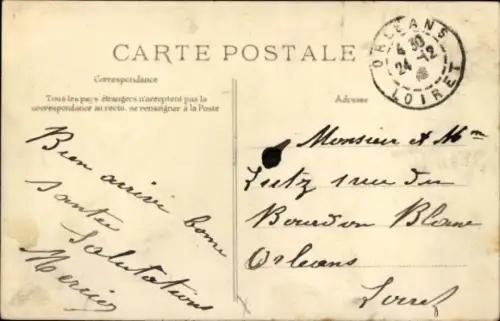 CARTE POSTALE
Correspondance
Tous les pays étrangers n'acceptent pas la
correspondance au recto. se renseigner à la Poste
Adresse
ORLEANS
4 30
24 -12
LOIRET
Bien arrivé bonne
santée
Salutations
Mercier
Monsieur et Mme
Lutz 1 rue du
Bourdon Blanc
Orléans
Loiret